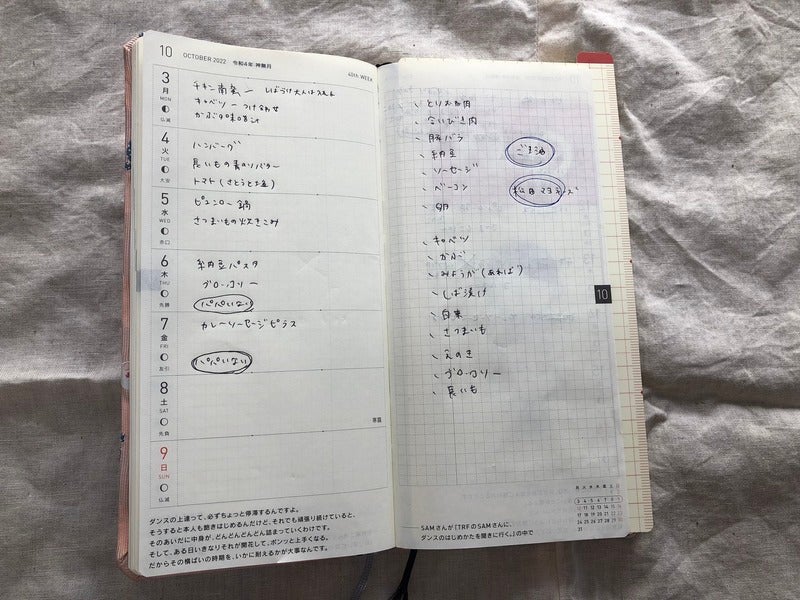 10 OCTOBER 2022 令和4年 神無月 40th WEEK
3
月
MON
仏滅
チキン南蛮ー しばらく大人は
キャベツーつけ合わせ
4
火
TUE
大安
ハンバーグ
長いもの青のりバター
トマト(さとうと塩)
5
水
WED
赤口
ピェンロー鍋
さつまいもの炊きこみ
6
木
THU
先勝
納豆パスタ
ブロッコリー
パパいない
7
金
FRI
友引
カレーソーセージピラフ
パパいない
8
土
SAT
先負
寒露
9
日
SUN
仏滅
ダンスの上達って、必ずちょっと停滞するんですよ。
そうすると本人も飽きはじめるんだけど、それでも頑張り続けていると、
そのあいだに中身が、どんどんどんどん詰まっていくわけです。
そして、ある日いきなりそれが開花して、ポンッと上手くなる。
だからその横ばいの時期を、いかに耐えるかが大事なんです。
、とりむね肉
、合いびき肉
、豚バラ
、納豆
、ソーセージ
、ベーコン
、卵
ごま油
松田マヨネーズ
、キャベツ
、かぶ
、みょうが(あれば)
、しば漬け
、白菜
、さつまいも
、えのき
、ブロッコリー
、長いも
10
月 火 水 木 金 土 日
3 4 5 6 7 8 9
10 11 12 13 14 15 16
17 18 19 20 21 22 23
24 25 26 27 28 29 30
31
SAMさんが「TRFのSAMさんに、
ダンスのはじめかたを聞きに行く。」の中で